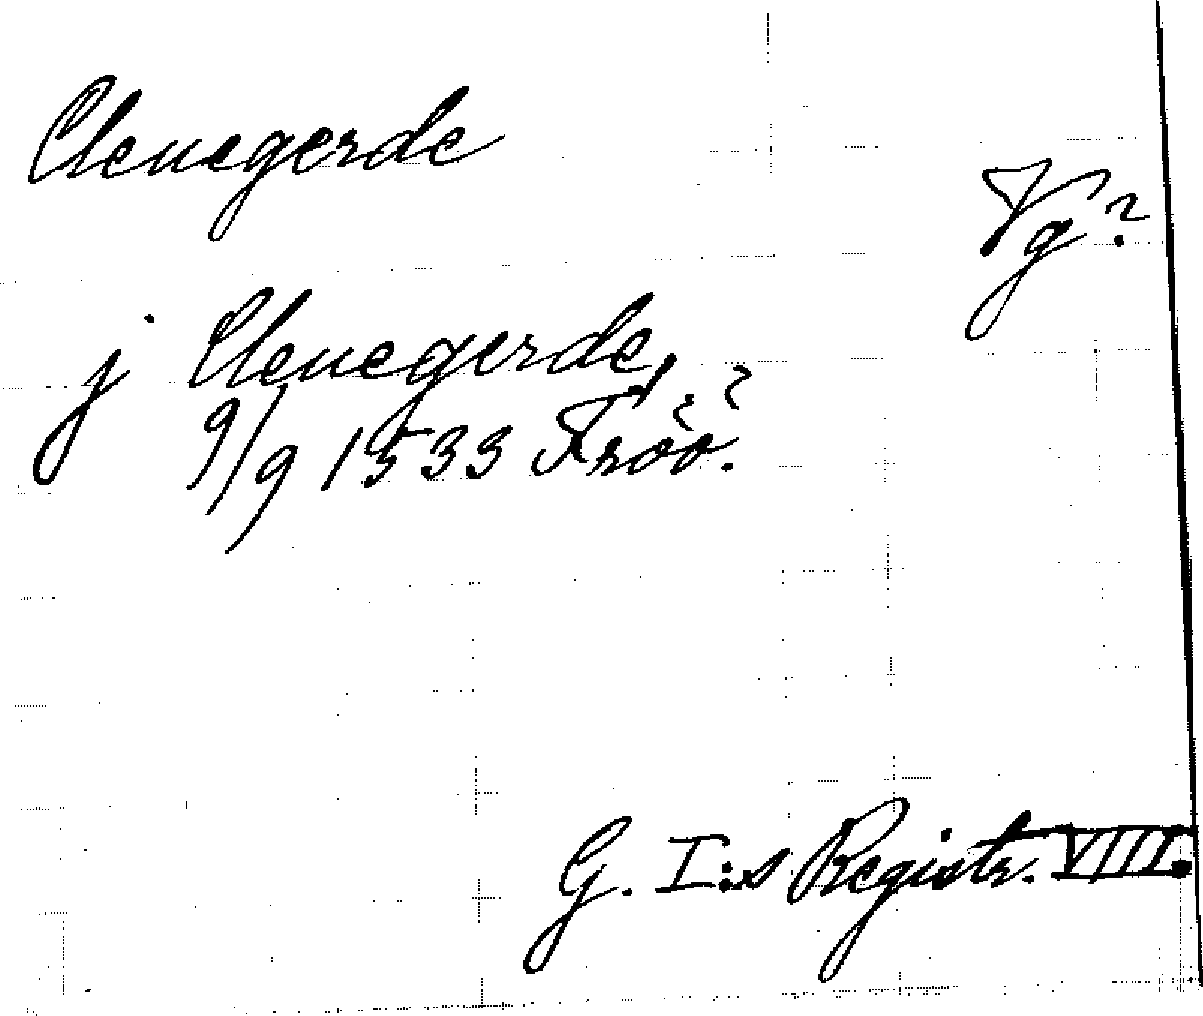 Cleuegerde
Vg?
j Cleuegerde,
9/9 1533
G. I:s Registr. VIII.